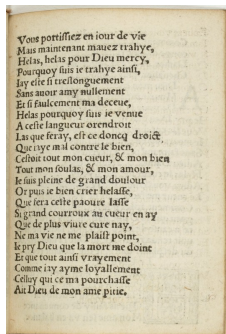 Vous portissiez en iour de vie
Mais maintenant mauez trahye,
Helas, helas pour Dieu mercy,
Pourquoy suis ie trahye ainsi,
Iay esté si treslonguement
Sans auoir amy nullement
Et si faulcement ma deceue,
Helas pourquoy suis ie venue
A ceste langueur orendroit
Las que feray, est ce doncq droict
Que iaye mal contre le bien,
Cestoit tout mon cueur, & mon bien
Tout mon soulas, & mon amour,
Ie suis pleine de grand doulour
Or puis ie bien crier helasse,
Que sera ceste paoure lasse
Si grand courroux au cueur en ay
Que de plus viure cure nay,
Ne ma vie ne me plaist point,
Ie pry Dieu que la mort me doint
Et que tout ainsi vrayement
Comme iay ayme loyallement
Celluy qui ce ma pourchasse
Ait Dieu de mon ame pitie.